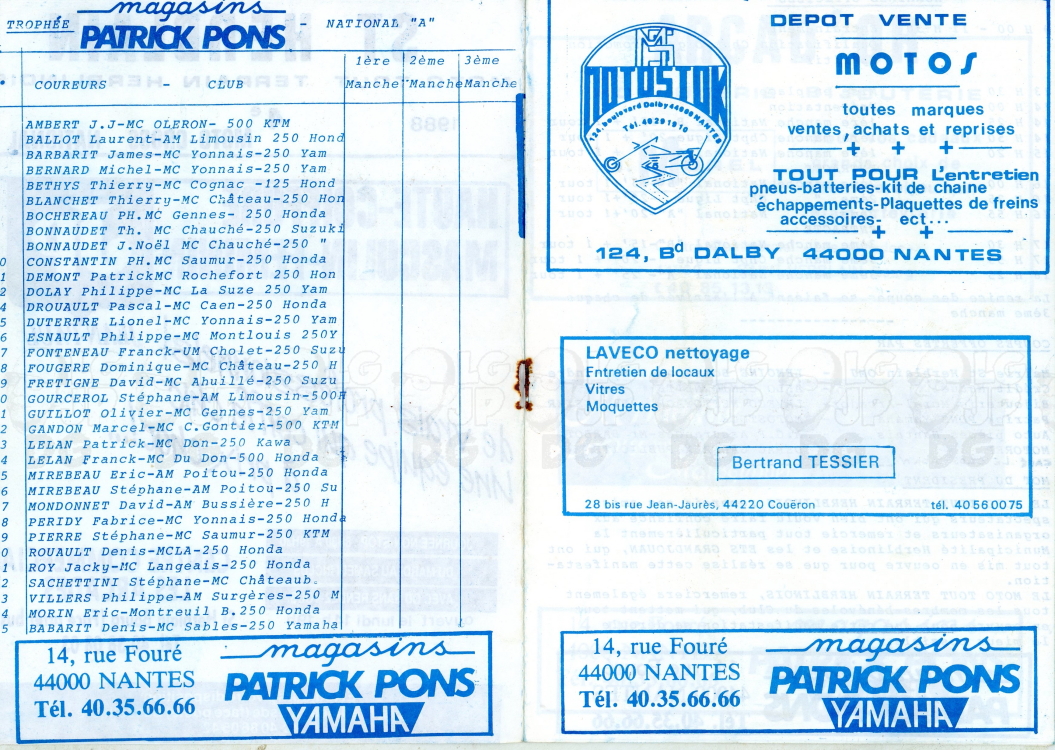 magasins
TROPHÉE PATRICK PONS - NATIONAL "A"
1ère 2ème 3ème
COUREURS - CLUB Manche Manche Manche
AMBERT J.J-MC OLERON- 500 KTM
BALLOT Laurent-AM Limousin 250 Hond
BARBARIT James-MC Yonnais-250 Yam
BERNARD Michel-MC Yonnais-250 Yam
BETHYS Thierry-MC Cognac -125 Hond
BLANCHET Thierry-MC Château-250 Hon
BOCHEREAU PH.MC Gennes- 250 Honda
BONNAUDET Th. MC Chauché-250 Suzuki
BONNAUDET J.Noël MC Chauché-250 "
0 CONSTANTIN PH.MC Saumur-250 Honda
1 DEMONT PatrickMC Rochefort 250 Hon
2 DOLAY Philippe-MC La Suze 250 Yam
4 DROUAULT Pascal-MC Caen-250 Honda
5 DUTERTRE Lionel-MC Yonnais-250 Yam
6 ESNAULT Philippe-MC Montlouis 250Y
7 FONTENEAU Franck-UM Cholet-250 Suzu
8 FOUGERE Dominique-MC Château-250 H
9 FRETIGNE David-MC Ahuillé-250 Suzu
0 GOURCEROL Stéphane-AM Limousin-500H
1 GUILLOT Olivier-MC Gennes-250 Yam
2 GANDON Marcel-MC C.Gontier-500 KTM
3 LELAN Patrick-MC Don-250 Kawa
4 LELAN Franck-MC Du Don-500 Honda
5 MIREBEAU Eric-AM Poitou-250 Honda
6 MIREBEAU Stéphane-AM Poitou-250 Su
7 MONDONNET David-AM Bussière-250 H
8 PERIDY Fabrice-MC Yonnais-250 Honda
9 PIERRE Stéphane-MC Saumur-250 KTM
0 ROUAULT Denis-MCLA-250 Honda
1 ROY Jacky-MC Langeais-250 Honda
2 SACHETTINI Stéphane-MC Châteaub.
3 VILLERS Philippe-AM Surgères-250 M
4 MORIN Eric-Montreuil B.250 Honda
5 BABARIT Denis-MC Sables-250 Yamaha
14, rue Fouré
44000 NANTES
Tél. 40.35.66.66
magasins
PATRICK PONS
YAMAHA
MOTOSTOK
124, boulevard Dalby 44000 NANTES
Tél. 40 29 10 10
DEPOT VENTE
MOTOS
toutes marques
ventes, achats et reprises
TOUT POUR L'entretien
pneus-batteries-kit de chaine
échappements-Plaquettes de freins
accessoires- ect...
124, Bd DALBY 44000 NANTES
LAVECO nettoyage
Entretien de locaux
Vitres
Moquettes
Bertrand TESSIER
28 bis rue Jean-Jaurès, 44220 Couëron tél. 40 56 00 75
14, rue Fouré
44000 NANTES
Tél. 40.35.66.66
magasins
PATRICK PONS
YAMAHA